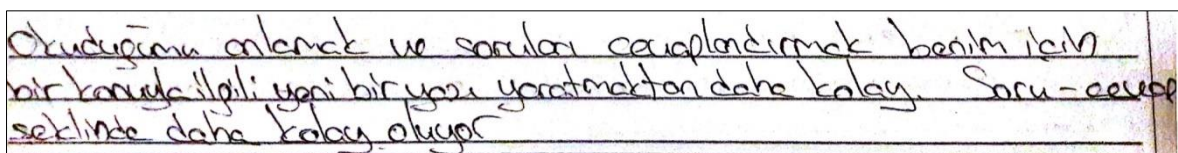 Okuduğumu anlamak ve soruları cevaplandırmak benim için
bir konuyla ilgili yeni bir yazı yaratmaktan daha kolay. Soru-cevap
şeklinde daha kolay oluyor